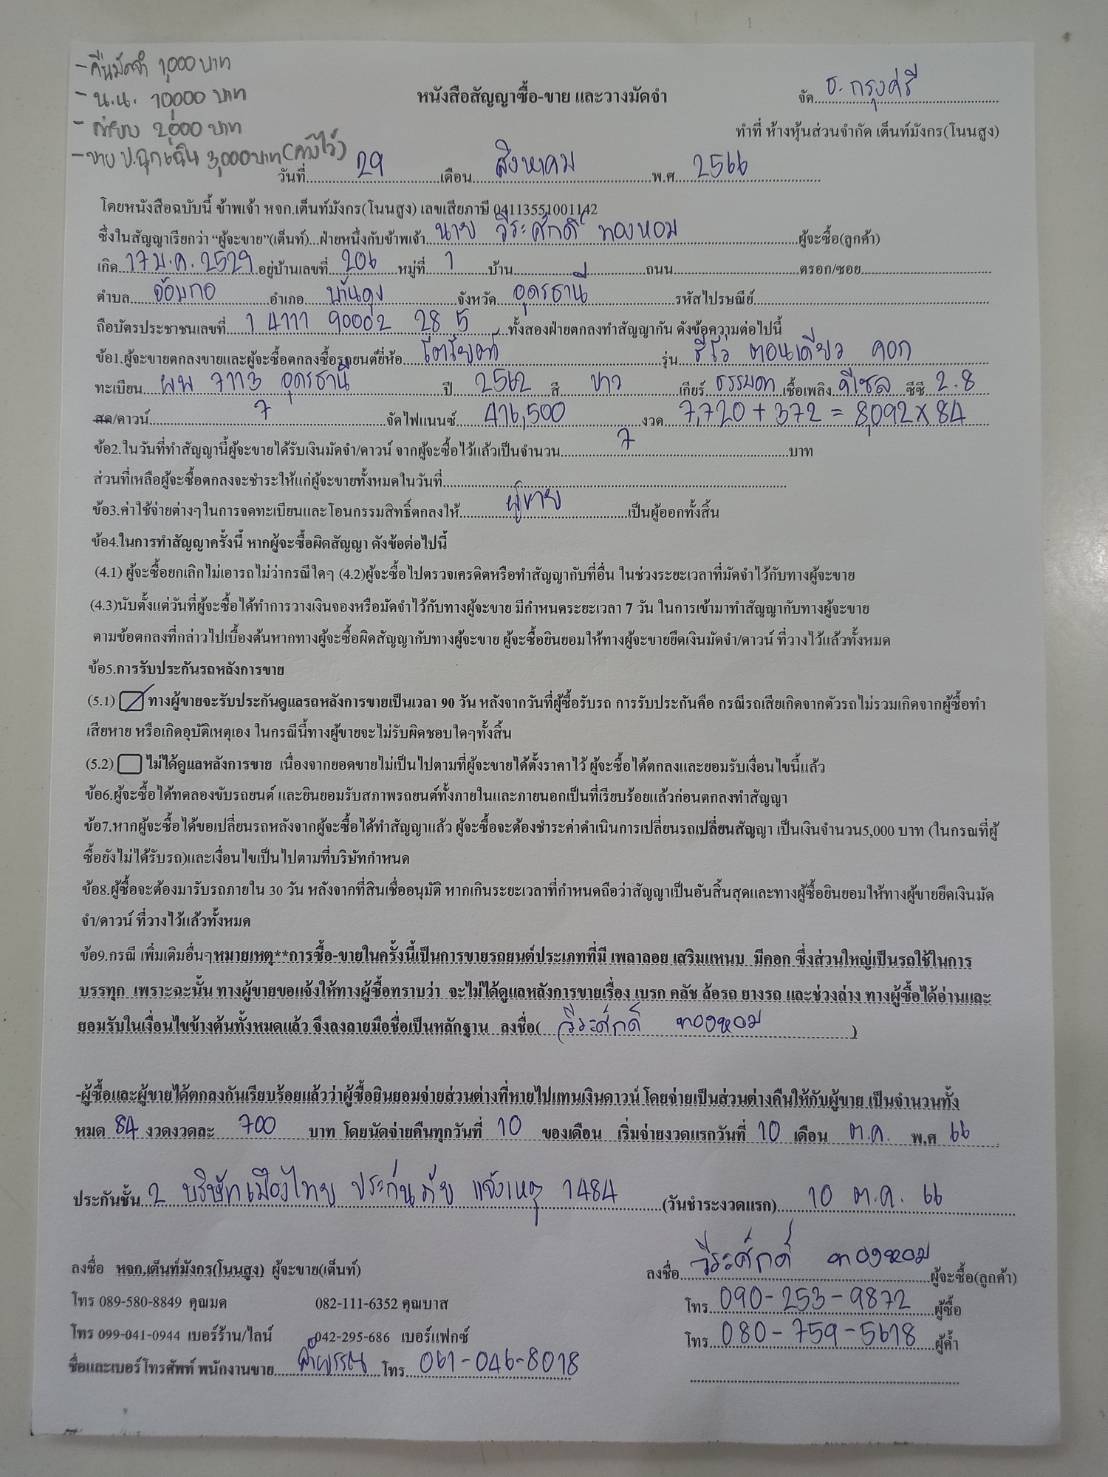 - คืนมัดจำ 1,000 บาท
- น.น. 10,000 บาท
- 2,000 บาท
- ขาย ป.ฉุกเฉิน 3,000 บาท
หนังสือสัญญาซื้อ-ขาย และวางมัดจำ
จัด ธ. กรุงศรี
ทำที่ ห้างหุ้นส่วนจำกัด เต็นท์มังกร(โนนสูง)
วันที่ 29 เดือน สิงหาคม พ.ศ. 2566
โดยหนังสือฉบับนี้ ข้าพเจ้า หจก.เต็นท์มังกร(โนนสูง) เลขเสียภาษี 04113551001142
ซึ่งในสัญญาเรียกว่า "ผู้จะขาย"(เต็นท์)...ฝ่ายหนึ่งกับข้าพเจ้า นาย วีระศักดิ์ ทองหอม ผู้จะซื้อ(ลูกค้า)
เกิด 17 ม.ค. 2529 อยู่บ้านเลขที่ 206 หมู่ที่ 1 บ้าน ถนน ตรอก/ซอย
ตำบล อ้อมกอ อำเภอ บ้านดุง จังหวัด อุดรธานี รหัสไปรษณีย์
ถือบัตรประชาชนเลขที่ 1 4111 90002 28 5 ทั้งสองฝ่ายตกลงทำสัญญากัน ดังข้อความต่อไปนี้
ข้อ1.ผู้จะขายตกลงขายและผู้จะซื้อตกลงซื้อรถยนต์ยี่ห้อ โตโยต้า รุ่น รีโว่ ตอนเดียว คอก
ทะเบียน ผพ 7113 อุดรธานี ปี 2562 สี ขาว เกียร์ ธรรมดา เชื้อเพลิง ดีเซล ซีซี 2.8
สด/ดาวน์ 7 จัดไฟแนนซ์ 416,500 งวด 7,720 + 372 = 8,092 x 84
ข้อ2.ในวันที่ทำสัญญานี้ผู้จะขายได้รับเงินมัดจำ/ดาวน์ จากผู้จะซื้อไว้แล้วเป็นจำนวน 7 บาท
ส่วนที่เหลือผู้จะซื้อตกลงจะชำระให้แก่ผู้จะขายทั้งหมดในวันที่
ข้อ3.ค่าใช้จ่ายต่างๆในการจดทะเบียนและโอนกรรมสิทธิ์ตกลงให้ ผู้ขาย เป็นผู้ออกทั้งสิ้น
ข้อ4.ในการทำสัญญาครั้งนี้ หากผู้จะซื้อผิดสัญญา ดังข้อต่อไปนี้
(4.1) ผู้จะซื้อยกเลิกไม่เอารถไม่ว่ากรณีใดๆ (4.2)ผู้จะซื้อไปตรวจเครดิตหรือทำสัญญากับที่อื่น ในช่วงระยะเวลาที่มัดจำไว้กับทางผู้จะขาย
(4.3)นับตั้งแต่วันที่ผู้จะซื้อได้ทำการวางเงินจองหรือมัดจำไว้กับทางผู้จะขาย มีกำหนดระยะเวลา 7 วัน ในการเข้ามาทำสัญญากับทางผู้จะขาย
ตามข้อตกลงที่กล่าวไปเบื้องต้นหากทางผู้จะซื้อผิดสัญญากับทางผู้จะขาย ผู้จะซื้อยินยอมให้ทางผู้จะขายยึดเงินมัดจำ/ดาวน์ ที่วางไว้แล้วทั้งหมด
ข้อ5.การรับประกันรถหลังการขาย
(5.1) ทางผู้ขายจะรับประกันดูแลรถหลังการขายเป็นเวลา 90 วัน หลังจากวันที่ผู้ซื้อรับรถ การรับประกันคือ กรณีรถเสียเกิดจากตัวรถไม่รวมเกิดจากผู้ซื้อทำ
เสียหาย หรือเกิดอุบัติเหตุเอง ในกรณีนี้ทางผู้ขายจะไม่รับผิดชอบใดๆทั้งสิ้น
(5.2) ไม่ได้ดูแลหลังการขาย เนื่องจากยอดขายไม่เป็นไปตามที่ผู้จะขายได้ตั้งราคาไว้ ผู้จะซื้อได้ตกลงและยอมรับเงื่อนไขนี้แล้ว
ข้อ6.ผู้จะซื้อได้ทดลองขับรถยนต์ และยินยอมรับสภาพรถยนต์ทั้งภายในและภายนอกเป็นที่เรียบร้อยแล้วก่อนตกลงทำสัญญา
ข้อ7.หากผู้จะซื้อได้ขอเปลี่ยนรถหลังจากผู้จะซื้อได้ทำสัญญาแล้ว ผู้จะซื้อจะต้องชำระค่าดำเนินการเปลี่ยนรถเปลี่ยนสัญญา เป็นเงินจำนวน5,000 บาท (ในกรณที่ผู้
ซื้อยังไม่ได้รับรถ)และเงื่อนไขเป็นไปตามที่บริษัทกำหนด
ข้อ8.ผู้ซื้อจะต้องมารับรถภายใน 30 วัน หลังจากที่สินเชื่ออนุมัติ หากเกินระยะเวลาที่กำหนดถือว่าสัญญาเป็นอันสิ้นสุดและทางผู้ซื้อยินยอมให้ทางผู้ขายยึดเงินมัด
จำ/ดาวน์ ที่วางไว้แล้วทั้งหมด
ข้อ9.กรณี เพิ่มเติมอื่นๆหมายเหตุ**การซื้อ-ขายในครั้งนี้เป็นการขายรถยนต์ประเภทที่มี เพลาลอย เสริมแหนบ มีคอก ซึ่งส่วนใหญ่เป็นรถใช้ในการ
บรรทุก เพราะฉะนั้น ทางผู้ขายขอแจ้งให้ทางผู้ซื้อทราบว่า จะไม่ได้ดูแลหลังการขายเรื่อง เบรก คลัช ล้อรถ ยางรถ และช่วงล่าง ทางผู้ซื้อได้อ่านและ
ยอมรับในเงื่อนไขข้างต้นทั้งหมดแล้ว จึงลงลายมือชื่อเป็นหลักฐาน ลงชื่อ( วีระศักดิ์ ทองหอม )
-ผู้ซื้อและผู้ขายได้ตกลงกันเรียบร้อยแล้วว่าผู้ซื้อยินยอมจ่ายส่วนต่างที่หายไปแทนเงินดาวน์ โดยจ่ายเป็นส่วนต่างคืนให้กับผู้ขาย เป็นจำนวนทั้ง
หมด 84 งวดงวดละ 700 บาท โดยนัดจ่ายคืนทุกวันที่ 10 ของเดือน เริ่มจ่ายงวดแรกวันที่ 10 เดือน ต.ค. พ.ศ 66
ประกันชั้น 2 บริษัท เมืองไทย ประกันภัย แจ้งเหตุ 1484 (วันชำระงวดแรก) 10 ต.ค. 66
ลงชื่อ หจก.เต็นท์มังกร(โนนสูง) ผู้จะขาย(เต็นท์)
ลงชื่อ วีระศักดิ์ ทองหอม ผู้จะซื้อ(ลูกค้า)
โทร 089-580-8849 คุณมด 082-111-6352 คุณบาส
โทร 090-253-9872 ผู้ซื้อ
โทร 099-041-0944 เบอร์ร้าน/ไลน์ 042-295-686 เบอร์แฟกซ์
โทร 080-759-5618 ผู้ค้ำ
ชื่อและเบอร์โทรศัพท์ พนักงานขาย โทร 061-046-8018